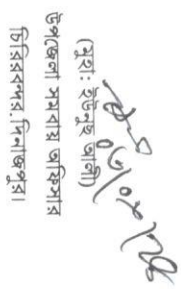 (মুহা: ইউনুছ আলী)
উপজেলা সমবায় অফিসার
চিরিরবন্দর, দিনাজপুর।